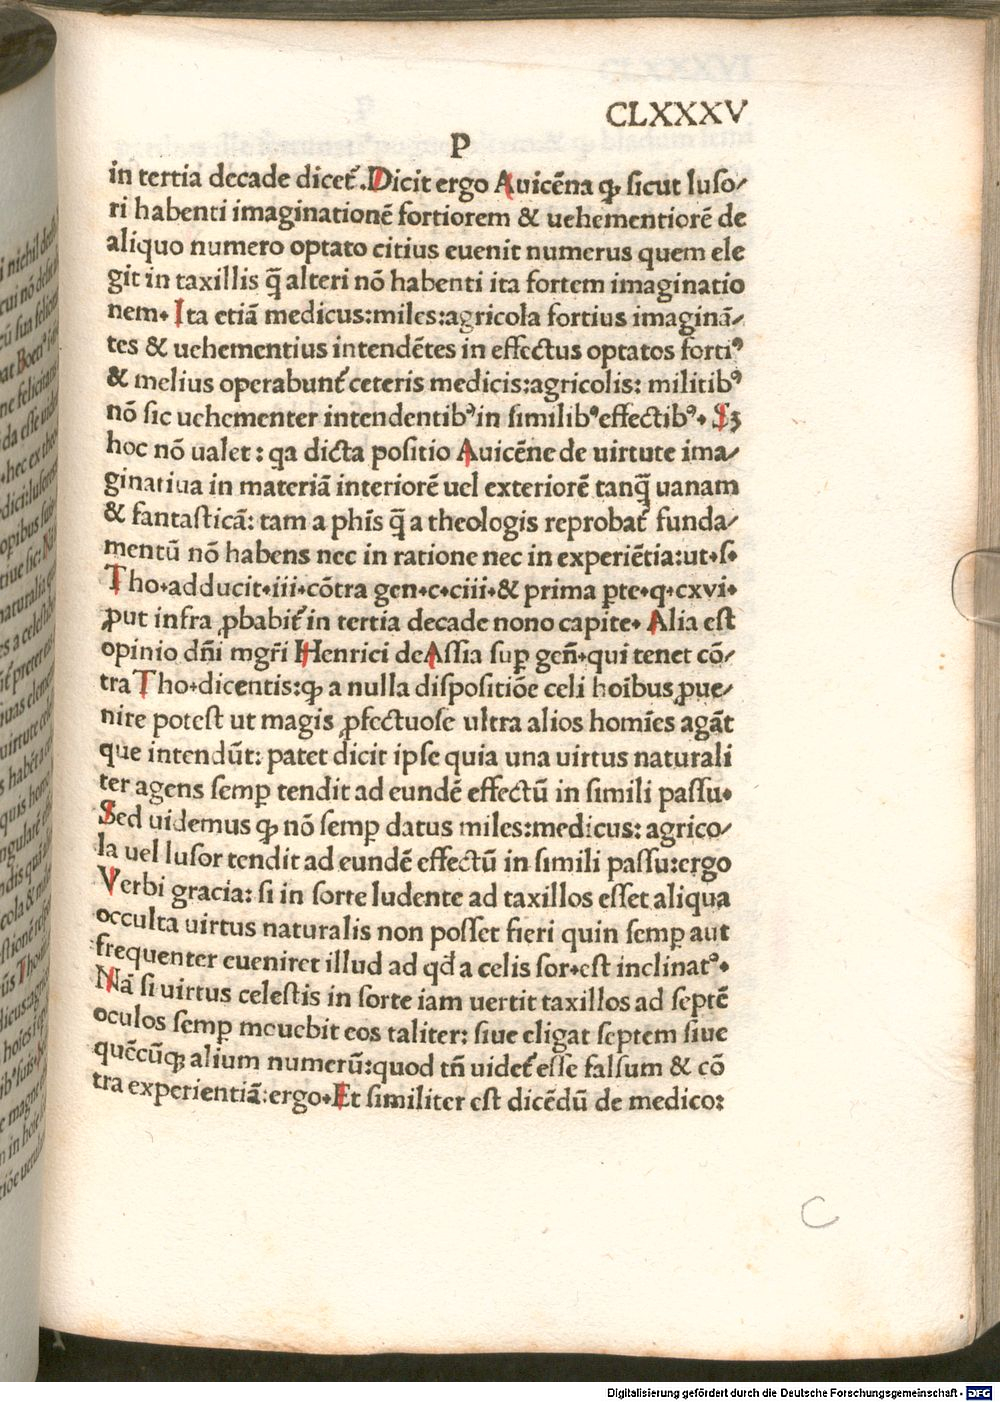 CLXXXV
P
in tertia decade dicet᷑.Dicit ergo Auicēna ꝙ sicut luso⸗
ri habenti imaginationē fortiorem & uehementiorē de
aliquo numero optato citius euenit numerus quem ele
git in taxillis q̄ alteri nō habenti ita fortem imaginatio
nem. Ita etiā medicus:miles:agricola fortius imaginā⸗
tes & uehementius intendētes in effectus optatos fortiꝰ
& melius operabunt᷑ ceteris medicis:agricolis: militibꝰ
nō sic uehementer intendentibꝰ in similibꝰ effectibꝰ. Sꝫ
hoc nō ualet: qa dicta positio Auicēne de uirtute ima⸗
ginatiua in materiā interiorē uel exteriorē tanq̄ uanam
& fantasticā: tam a phīs q̄ a theologis reprobat᷑ funda⸗
mentū nō habens nec in ratione nec in experiētia:ut.s.
Tho.adducit.iii.cōtra gen.c.ciii.& prima ꝑte.q.cxvi.
ꝓut infra ꝓbabit᷑ in tertia decade nono capite. Alia est
opinio dn̄i mgr̄i Henrici de Assia suꝑ gen̄.qui tenet cō⸗
tra Tho.dicentis:ꝙ a nulla dispositiōe celi hoibus ꝓue⸗
nire potest ut magis ꝓfectuose ultra alios homīes agāt
que intendūt: patet dicit ipse quia una uirtus naturali
ter agens semꝑ tendit ad eundē effectū in simili passu.
Sed uidemus ꝙ nō semꝑ datus miles:medicus: agrico⸗
la uel lusor tendit ad eundē effectū in simili passu:ergo
Verbi gracia: si in sorte ludente ad taxillos esset aliqua
occulta uirtus naturalis non posset fieri quin semꝑ aut
frequenter eueniret illud ad qd̄ a celis sor.est inclinatꝰ.
Nā si uirtus celestis in sorte iam uertit taxillos ad septē
oculos semꝑ mouebit eos taliter: siue eligat septem siue
quēcūqꝫ alium numerū:quod tn̄ uidet᷑ esse falsum & cō
tra experientiā:ergo.Et similiter est dicēdū de medico:
C
Digitalisierung gefördert durch die Deutsche Forschungsgemeinschaft - DFG